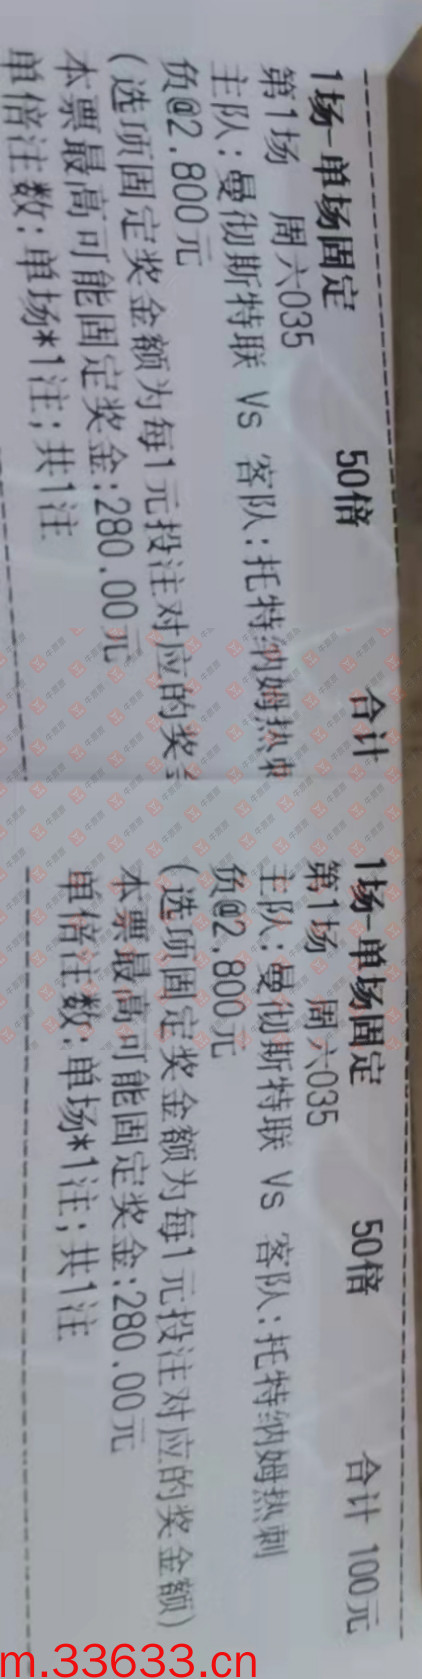 1场-单场固定 50倍 合计
第1场 周六035
主队:曼彻斯特联 Vs 客队:托特纳姆热刺
负@2.800元
(选项固定奖金额为每1元投注对应的奖
本票最高可能固定奖金:280.00元
单倍注数:单场*1注;共1注
1场-单场固定 50倍 合计 100元
第1场 周六035
主队:曼彻斯特联 Vs 客队:托特纳姆热刺
负@2.800元
(选项固定奖金额为每1元投注对应的奖金额)
本票最高可能固定奖金:280.00元
单倍注数:单场*1注;共1注
m.33633.cn